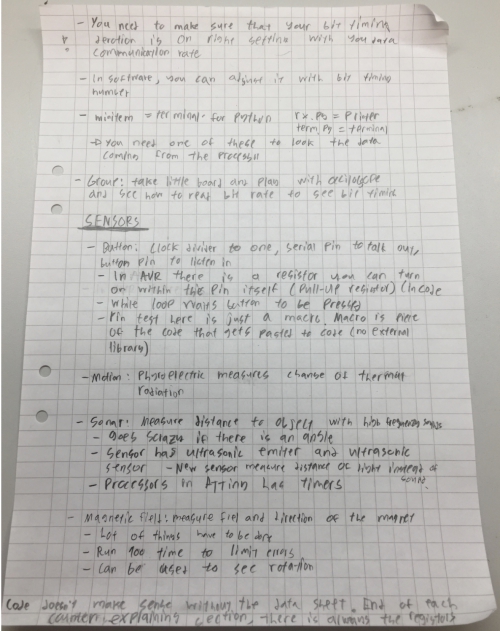 - You need to make sure that your bit timing
duration is on right setting with you data
communication rate
- In software, you can adjust it with bit timing
number
- miniterm = terminal for Python rx.py = Printer
term.py = terminal
→ You need one of these to look the data
coming from the processor
- Group: take little board and play with oscilloscope
and see how to read bit rate to see bit timing
SENSORS
- Button: Clock divider to one, serial pin to talk out,
button pin to listen in
- In AVR there is a resistor you can turn
on within the pin itself (Pull-up resistor) (In code
- While loop waits button to be pressed
- Pin test here is just a macro. Macro is piece
of the code that gets pasted to code (no external
library)
- Motion: Photoelectric measures change of thermal
radiation
- Sonar: Measure distance to object with high frequency
- Goes crazy if there is an angle
- Sensor has ultrasonic emiter and ultrasonic
sensor - New sensor measure distance of light instead of
sound.
- Processors in ATTiny has timers
- Magnetic field: measure fiel and direction of the magnet
- Lot of things have to be done
- Run 100 time to limit errors
- Can be used to see rotation
Code doesn't make sense without the data sheet. End of each
counter explaining section, there is always the registors